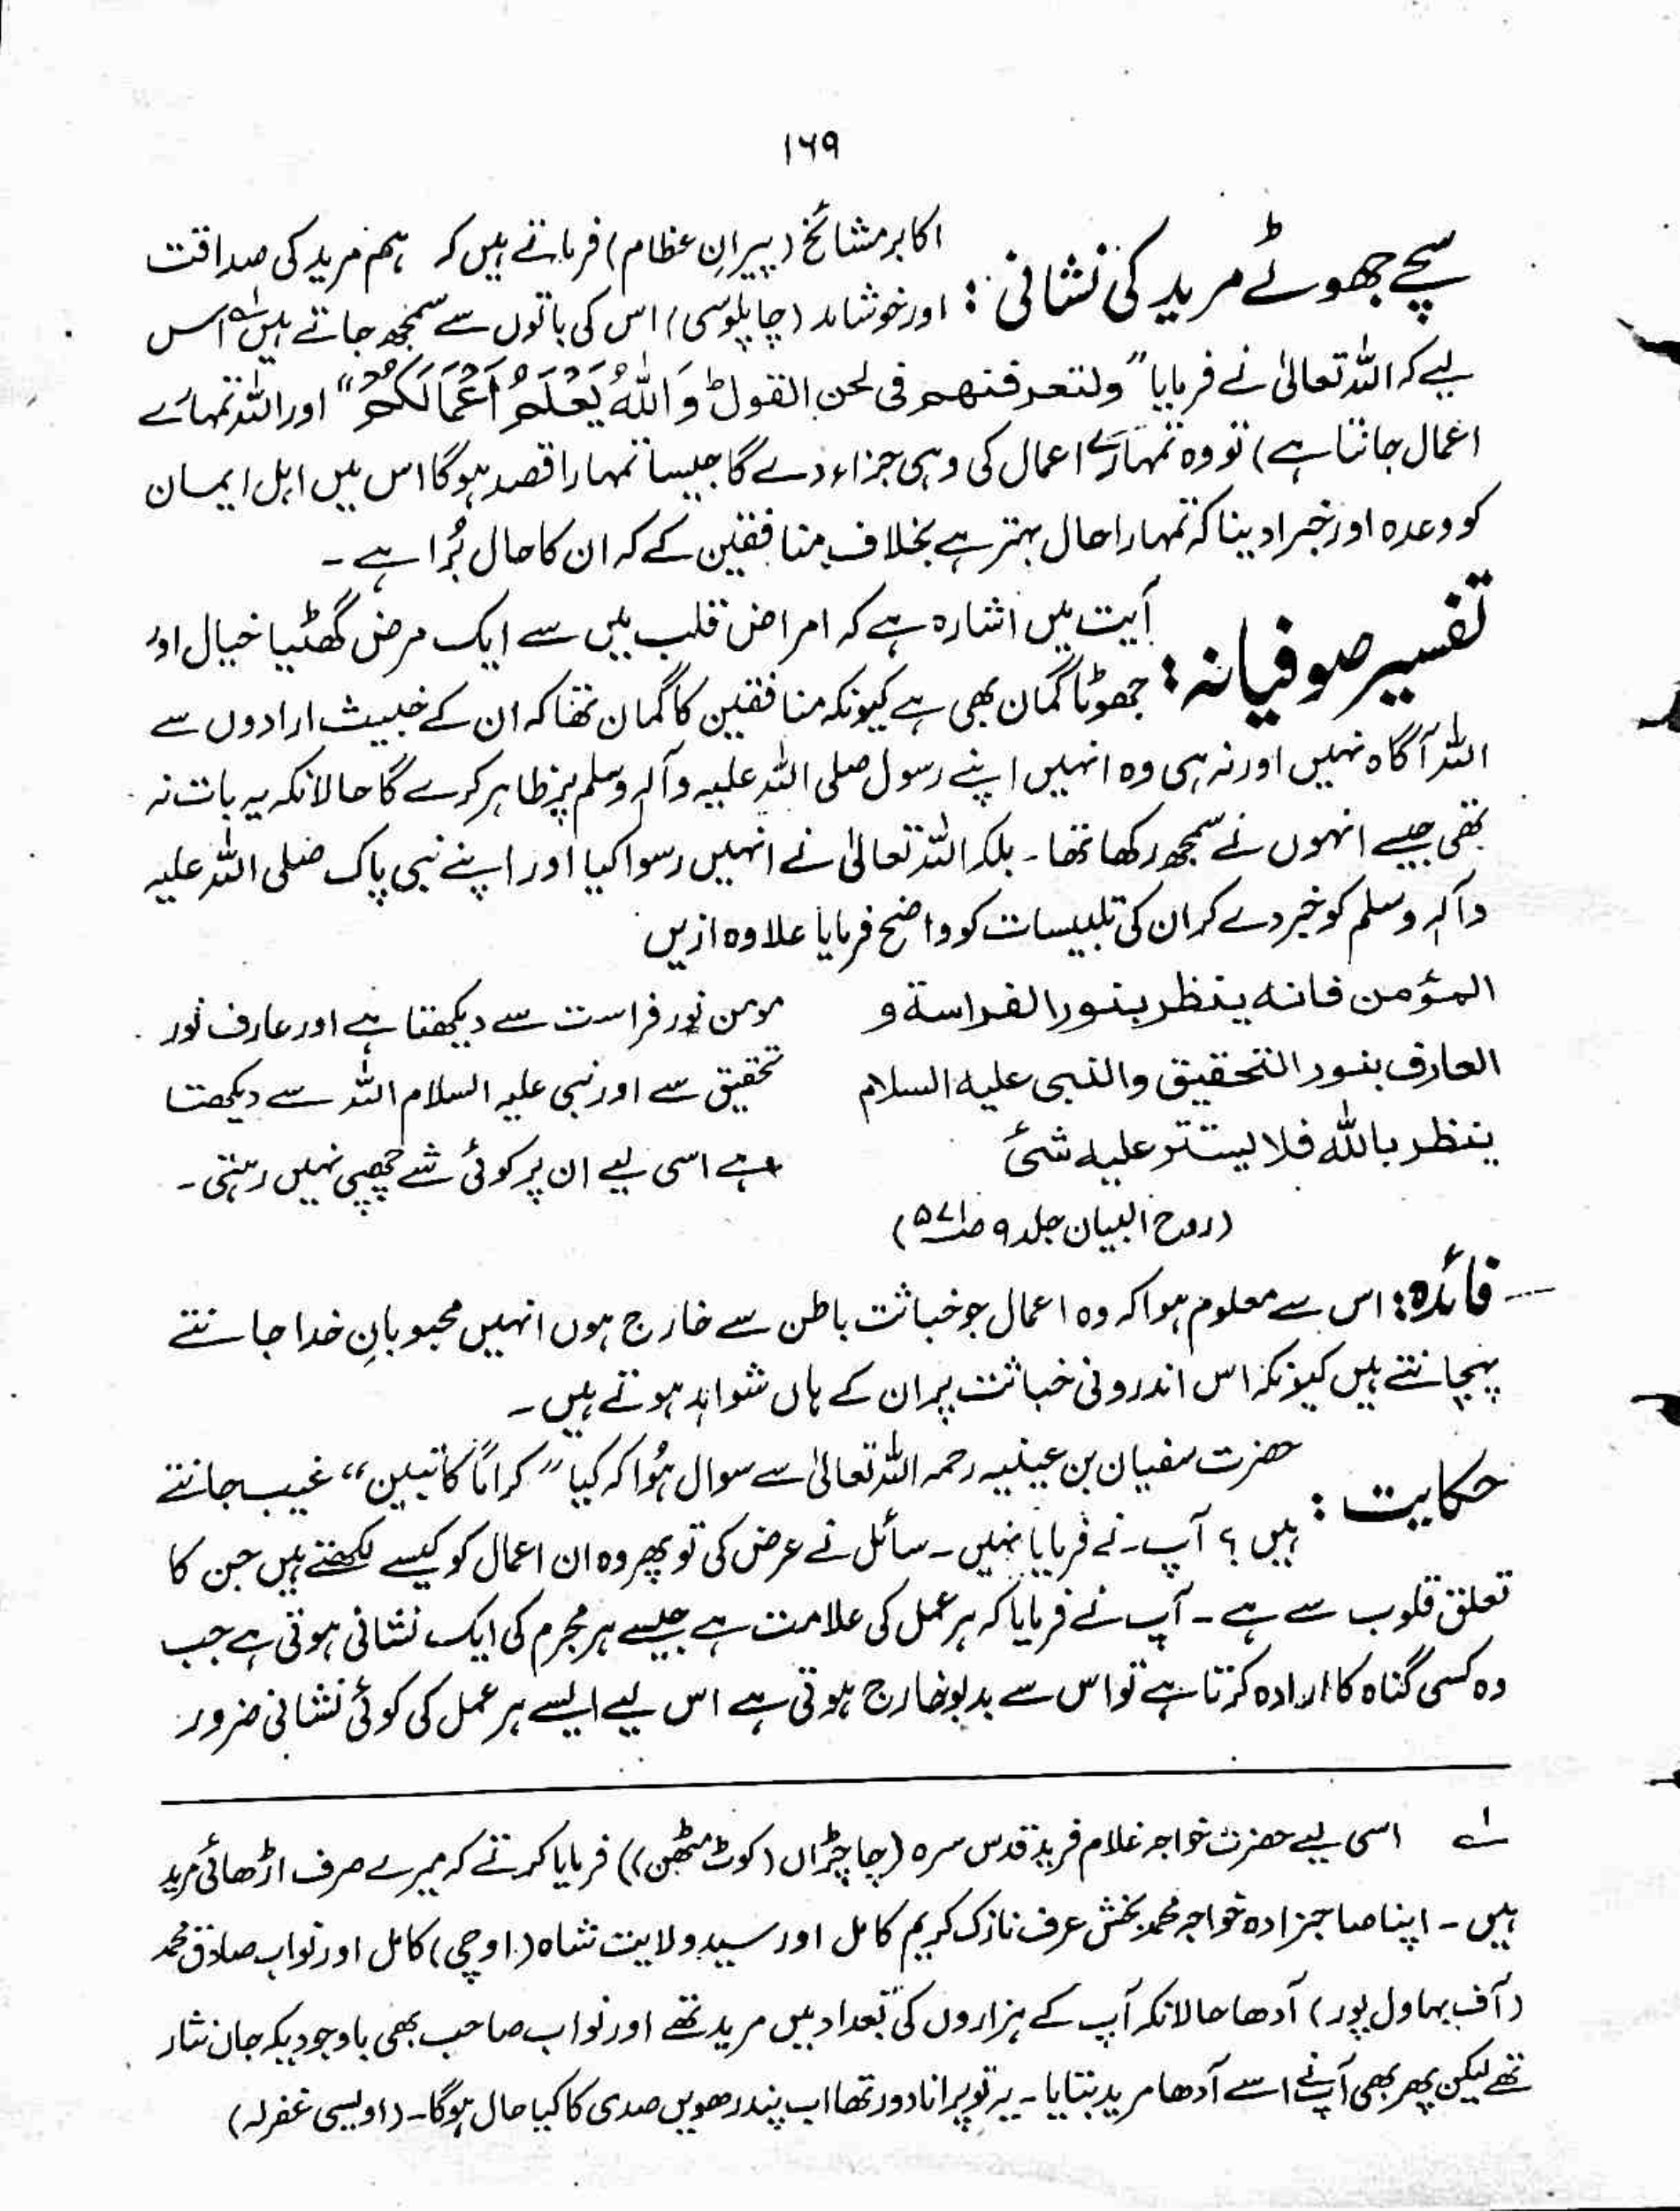 ۱۶۹
سچے جھوٹے مرید کی نشانی : اکابر مشائخ (پیرانِ عظام) فرماتے ہیں کہ ہم مرید کی صداقت
اور خوشامد (چاپلوسی) اس کی باتوں سے سمجھ جاتے ہیں ؎۱ اس
لیے کہ اللہ تعالیٰ نے فرمایا ”ولتعرفنھم فی لحن القول ط وَاللّٰہُ یَعْلَمُ اَعْمَالَکُمْ“ اور اللہ تمہارے
اعمال جانتا ہے) تو وہ تمہارے اعمال کی وہی جزاء دے گا جیسا تمہارا قصد ہوگا اس میں اہل ایمان
کو وعدہ اور خبر دینا کہ تمہارا حال بہتر ہے بخلاف منافقین کے کہ ان کا حال بُرا ہے ۔
تفسیر صوفیانہ : آیت میں اشارہ ہے کہ امراض قلب میں سے ایک مرض گھٹیا خیال اور
جھوٹا گمان بھی ہے کیونکہ منافقین کا گمان تھا کہ ان کے خبیث ارادوں سے
اللہ آگاہ نہیں اور نہ ہی وہ انہیں اپنے رسول صلی اللہ علیہ وآلہ وسلم پر ظاہر کرے گا حالانکہ یہ بات نہ
تھی جیسے انہوں نے سمجھ رکھا تھا ۔ بلکہ اللہ تعالیٰ نے انہیں رسوا کیا اور اپنے نبی پاک صلی اللہ علیہ
وآلہ وسلم کو خبر دے کر ان کی تلبیسات کو واضح فرمایا علاوہ ازیں
المؤمن فانہ ینظر بنور الفراسۃ و
العارف بنور التحقیق والنبی علیہ السلام
ینظر باللہ فلا یستتر علیہ شئ
مومن نور فراست سے دیکھتا ہے اور عارف نور
تحقیق سے اور نبی علیہ السلام اللہ سے دیکھتا
ہے اسی لیے ان پر کوئی شے چھپی نہیں رہتی ۔
(روح البیان جلد ۹ ص ۵۷۱)
فائدہ : اس سے معلوم ہوا کہ وہ اعمال جو خباثت باطن سے خارج ہوں انہیں محبوبانِ خدا جانتے
پہچانتے ہیں کیونکہ اس اندرونی خباثت پر ان کے ہاں شواہد ہوتے ہیں ۔
حکایت : حضرت سفیان بن عیینہ رحمہ اللہ تعالیٰ سے سوال ہُوا کہ کیا ”کراماً کاتبین“ غیب جانتے
ہیں ؟ آپ نے فرمایا نہیں ۔ سائل نے عرض کی تو پھر وہ ان اعمال کو کیسے لکھتے ہیں جن کا
تعلق قلوب سے ہے ۔ آپ نے فرمایا کہ ہر عمل کی علامت ہے جیسے ہر مجرم کی ایک نشانی ہوتی ہے جب
وہ کسی گناہ کا ارادہ کرتا ہے تو اس سے بدبو خارج ہوتی ہے اس لیے ایسے ہر عمل کی کوئی نشانی ضرور
؎۱ اسی لیے حضرت خواجہ غلام فرید قدس سرہ (چاچڑاں (کوٹ مٹھن)) فرمایا کرتے کہ میرے صرف اڑھائی مرید
ہیں ۔ اپنا صاحبزادہ خواجہ محمد بخش عرف نازک کریم کامل اور سید ولایت شاہ (اوچی) کامل اور نواب صادق محمد
(آف بہاول پور) آدھا حالانکہ آپ کے ہزاروں کی تعداد میں مرید تھے اور نواب صاحب بھی باوجودیکہ جان نثار
تھے لیکن پھر بھی آپ نے اسے آدھا مرید بتایا ۔ یہ تو پرانا دور تھا اب پندرھویں صدی کا کیا حال ہوگا ۔ (اویسی غفرلہ)